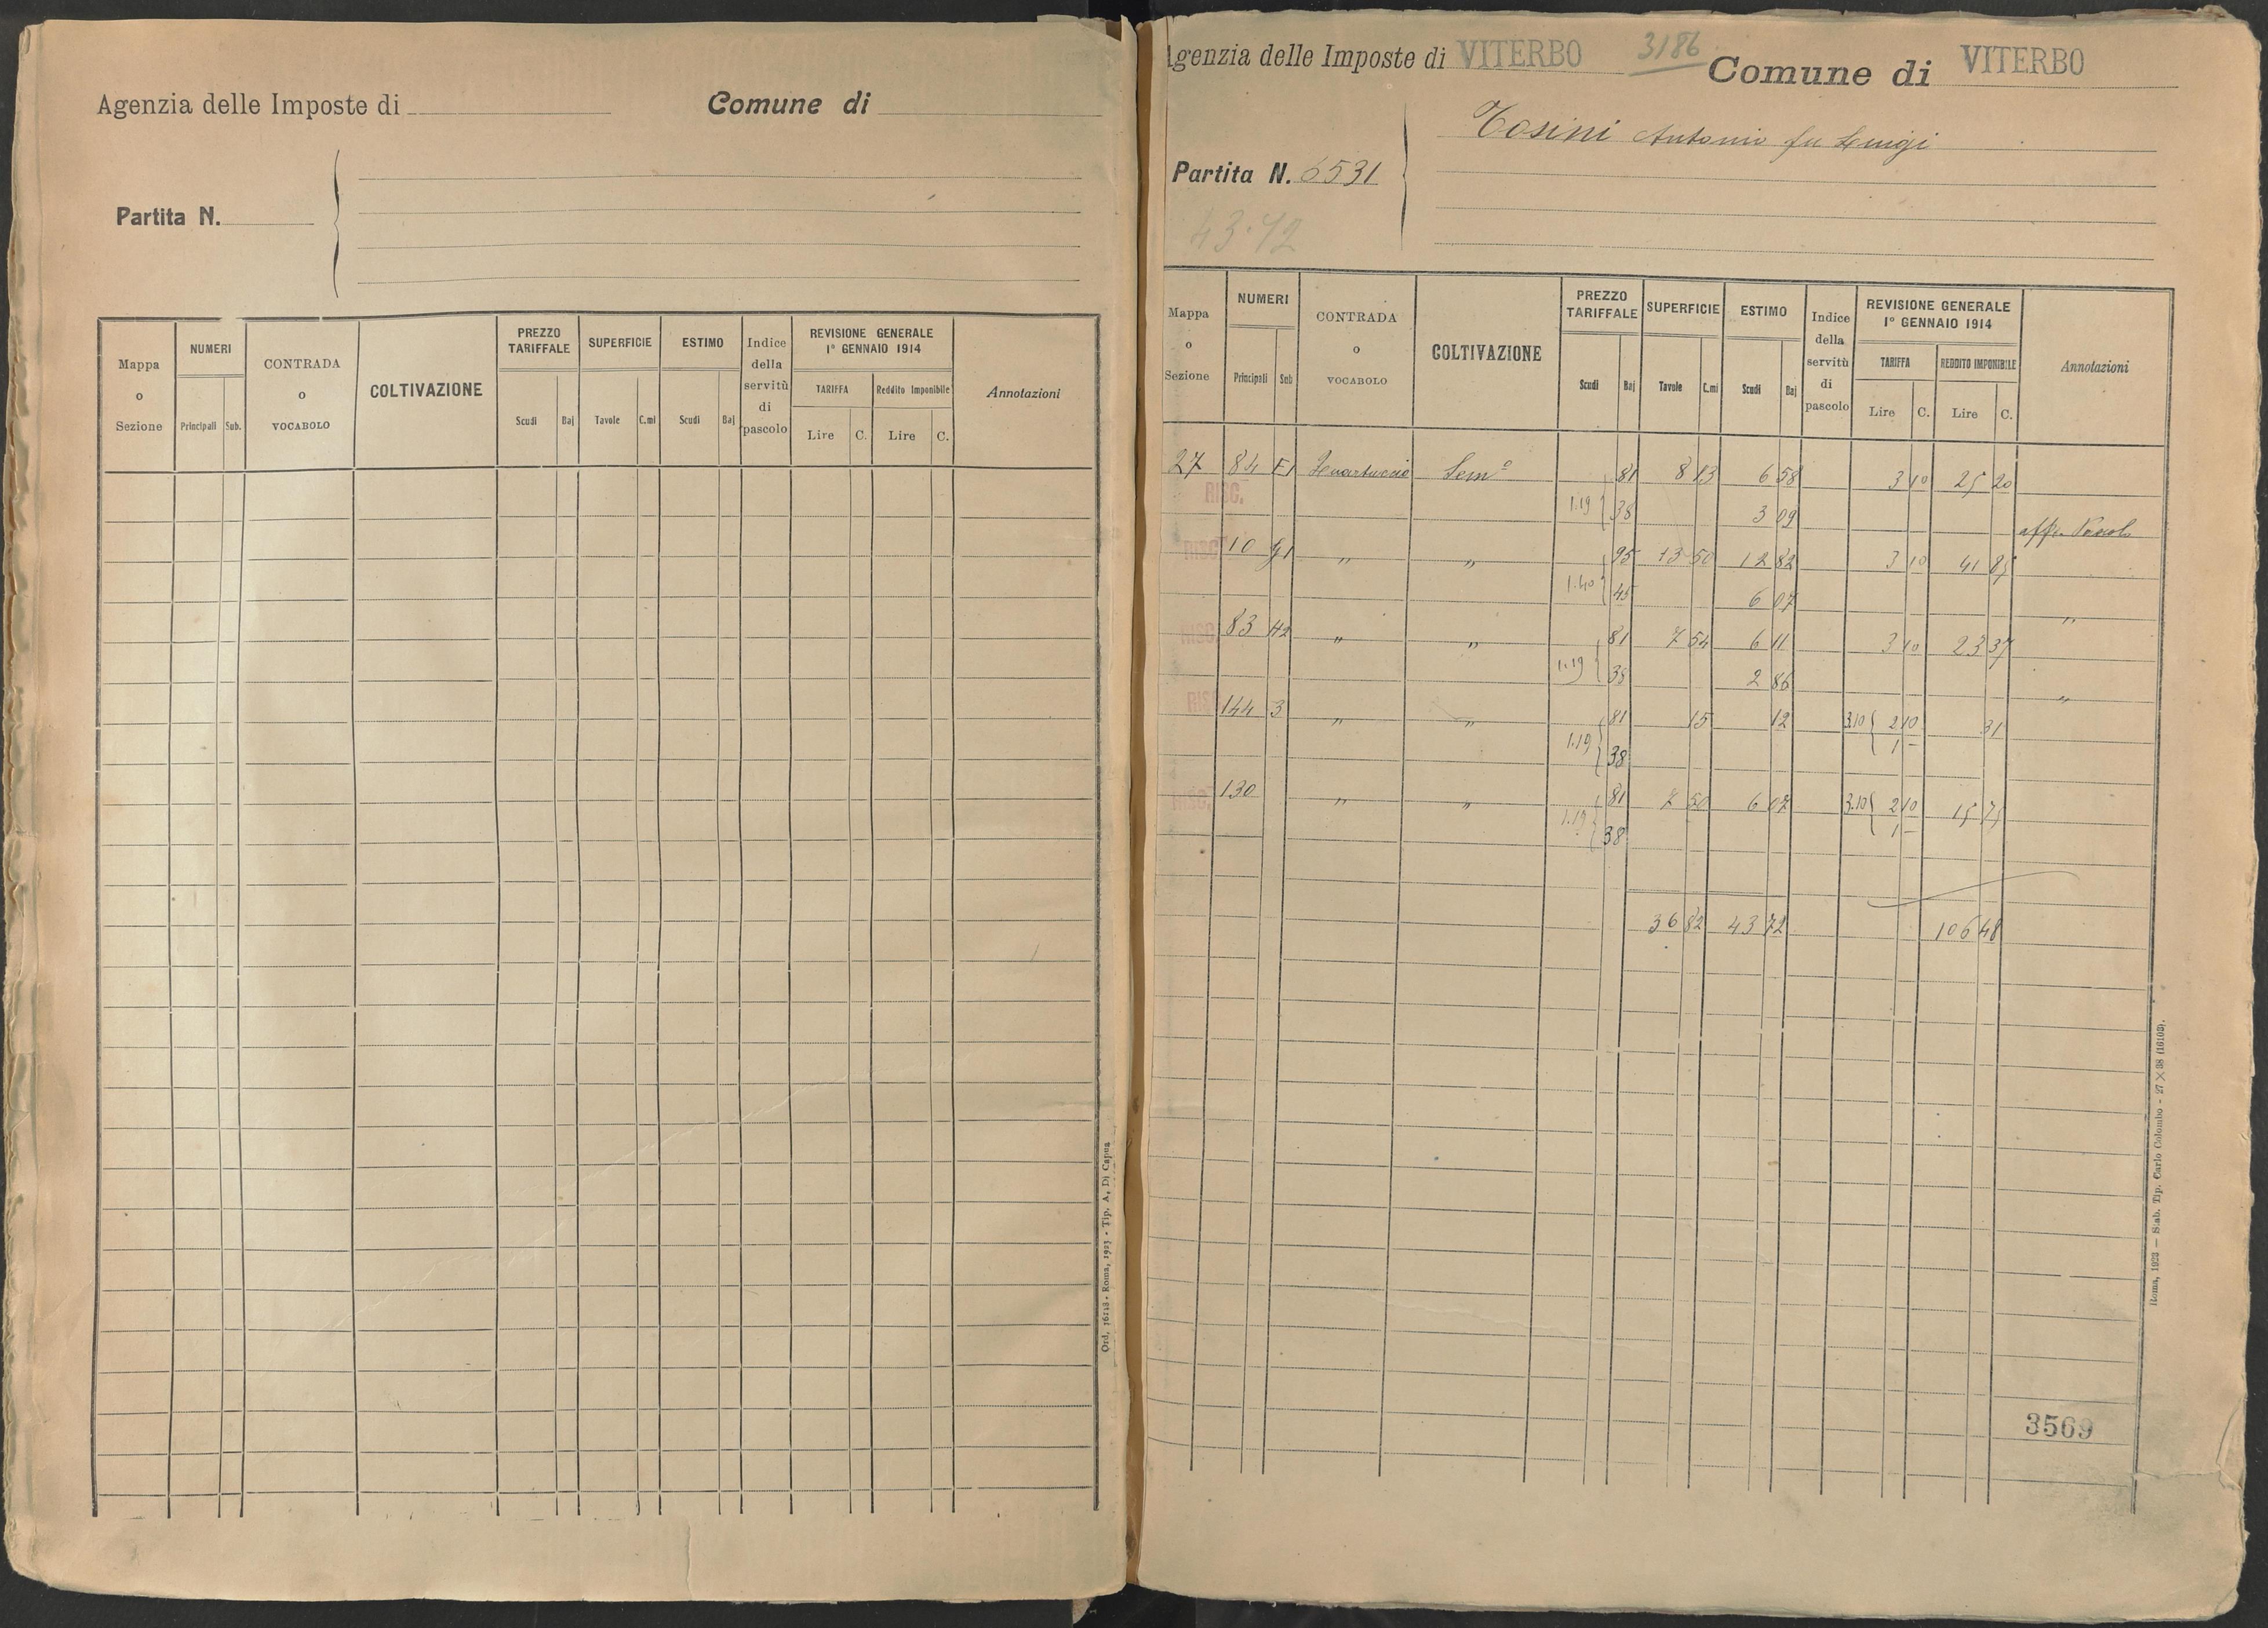 Agenzia delle Imposte di
Comune di
Partita N.
Mappa o Sezione
NUMERI
Principali Sub.
CONTRADA o VOCABOLO
COLTIVAZIONE
PREZZO TARIFFALE
Scudi Baj
SUPERFICIE
Tavole C.mi
ESTIMO
Scudi Baj
Indice della servitù di pascolo
REVISIONE GENERALE
1° GENNAIO 1914
TARIFFA Reddito Imponibile
Lire C. Lire C.
Annotazioni
Ord. 16148 - Roma, 1923 - Tip. A. Di Capua
Agenzia delle Imposte di VITERBO 3186 Comune di VITERBO
Tosini Antonio fu Luigi
Partita N. 6531
43.72
Mappa o Sezione
NUMERI
Principali Sub
CONTRADA o VOCABOLO
COLTIVAZIONE
PREZZO TARIFFALE
Scudi Baj
SUPERFICIE
Tavole C.mi
ESTIMO
Scudi Baj
Indice della servitù di pascolo
REVISIONE GENERALE
1° GENNAIO 1914
TARIFFA REDDITO IMPONIBILE
Lire C. Lire C.
Annotazioni
27 84 E1 Quartuccio Semo 81 8 13 6 58 3 10 25 20
RISC. 1.19 38 3 09 aff. Pascol
RISC. 10 G1 " " 95 13 50 12 82 3 10 41 85
1.40 45 6 07 "
RISC. 83 H2 " " 81 7 54 6 11 3 10 23 37
1.19 38 2 86 "
RISC. 144 3 " " 81 15 12 3.10 2 10 31
1.19 38 1 —
RISC. 130 " " 81 7 50 6 07 3.10 2 10 15 75
1.19 38 1 —
36 82 43 72 106 48
Roma, 1923 — Stab. Tip. Carlo Colombo - 27 × 38 (16103).
3569